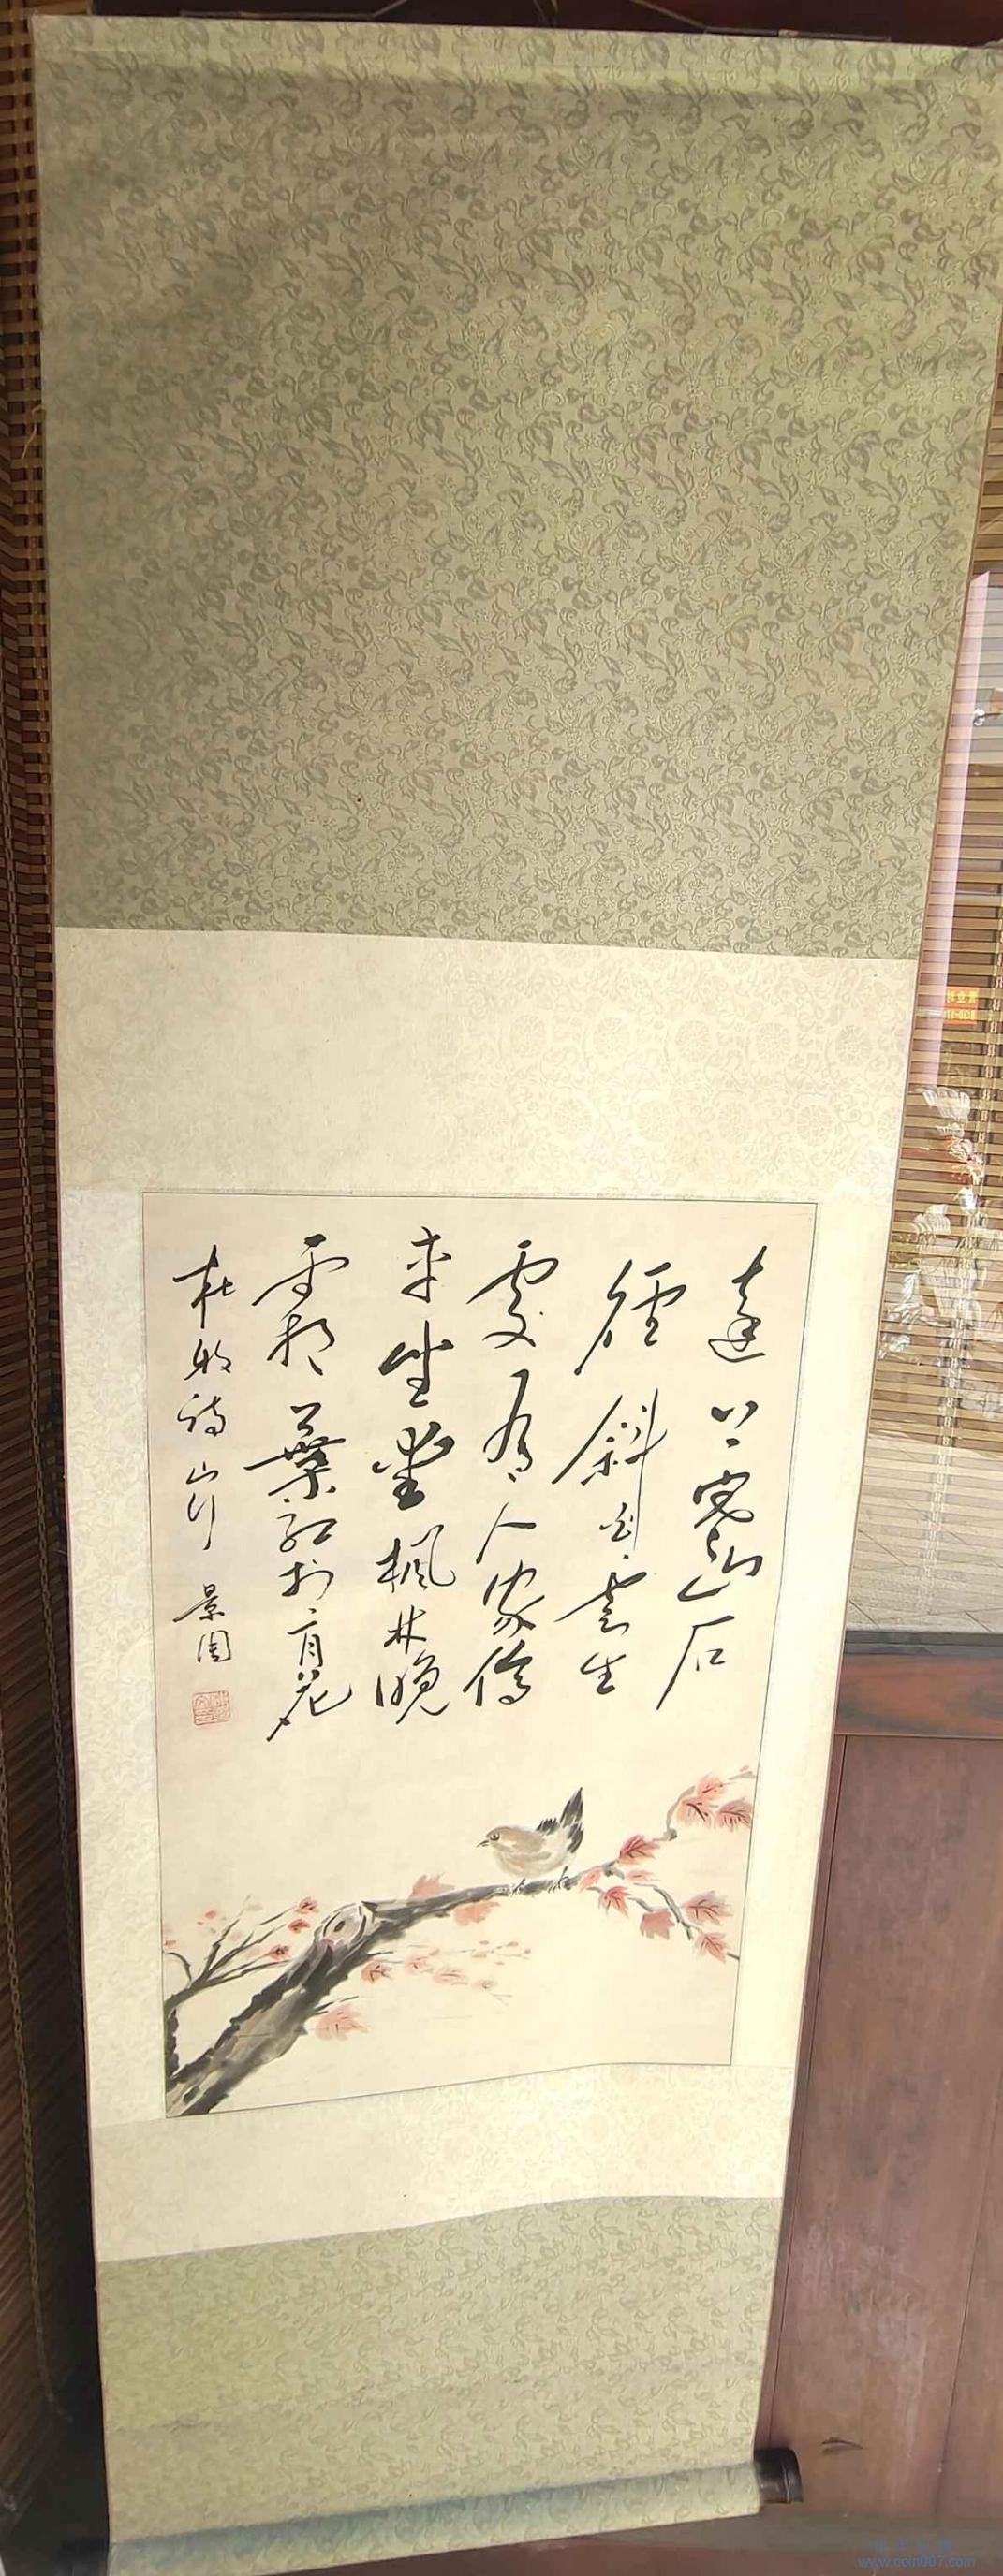 遠上寒山石
徑斜白雲生
處有人家停
車坐愛楓林晚
霜葉紅於二月花
杜牧詩山行 景
www.coin007.com